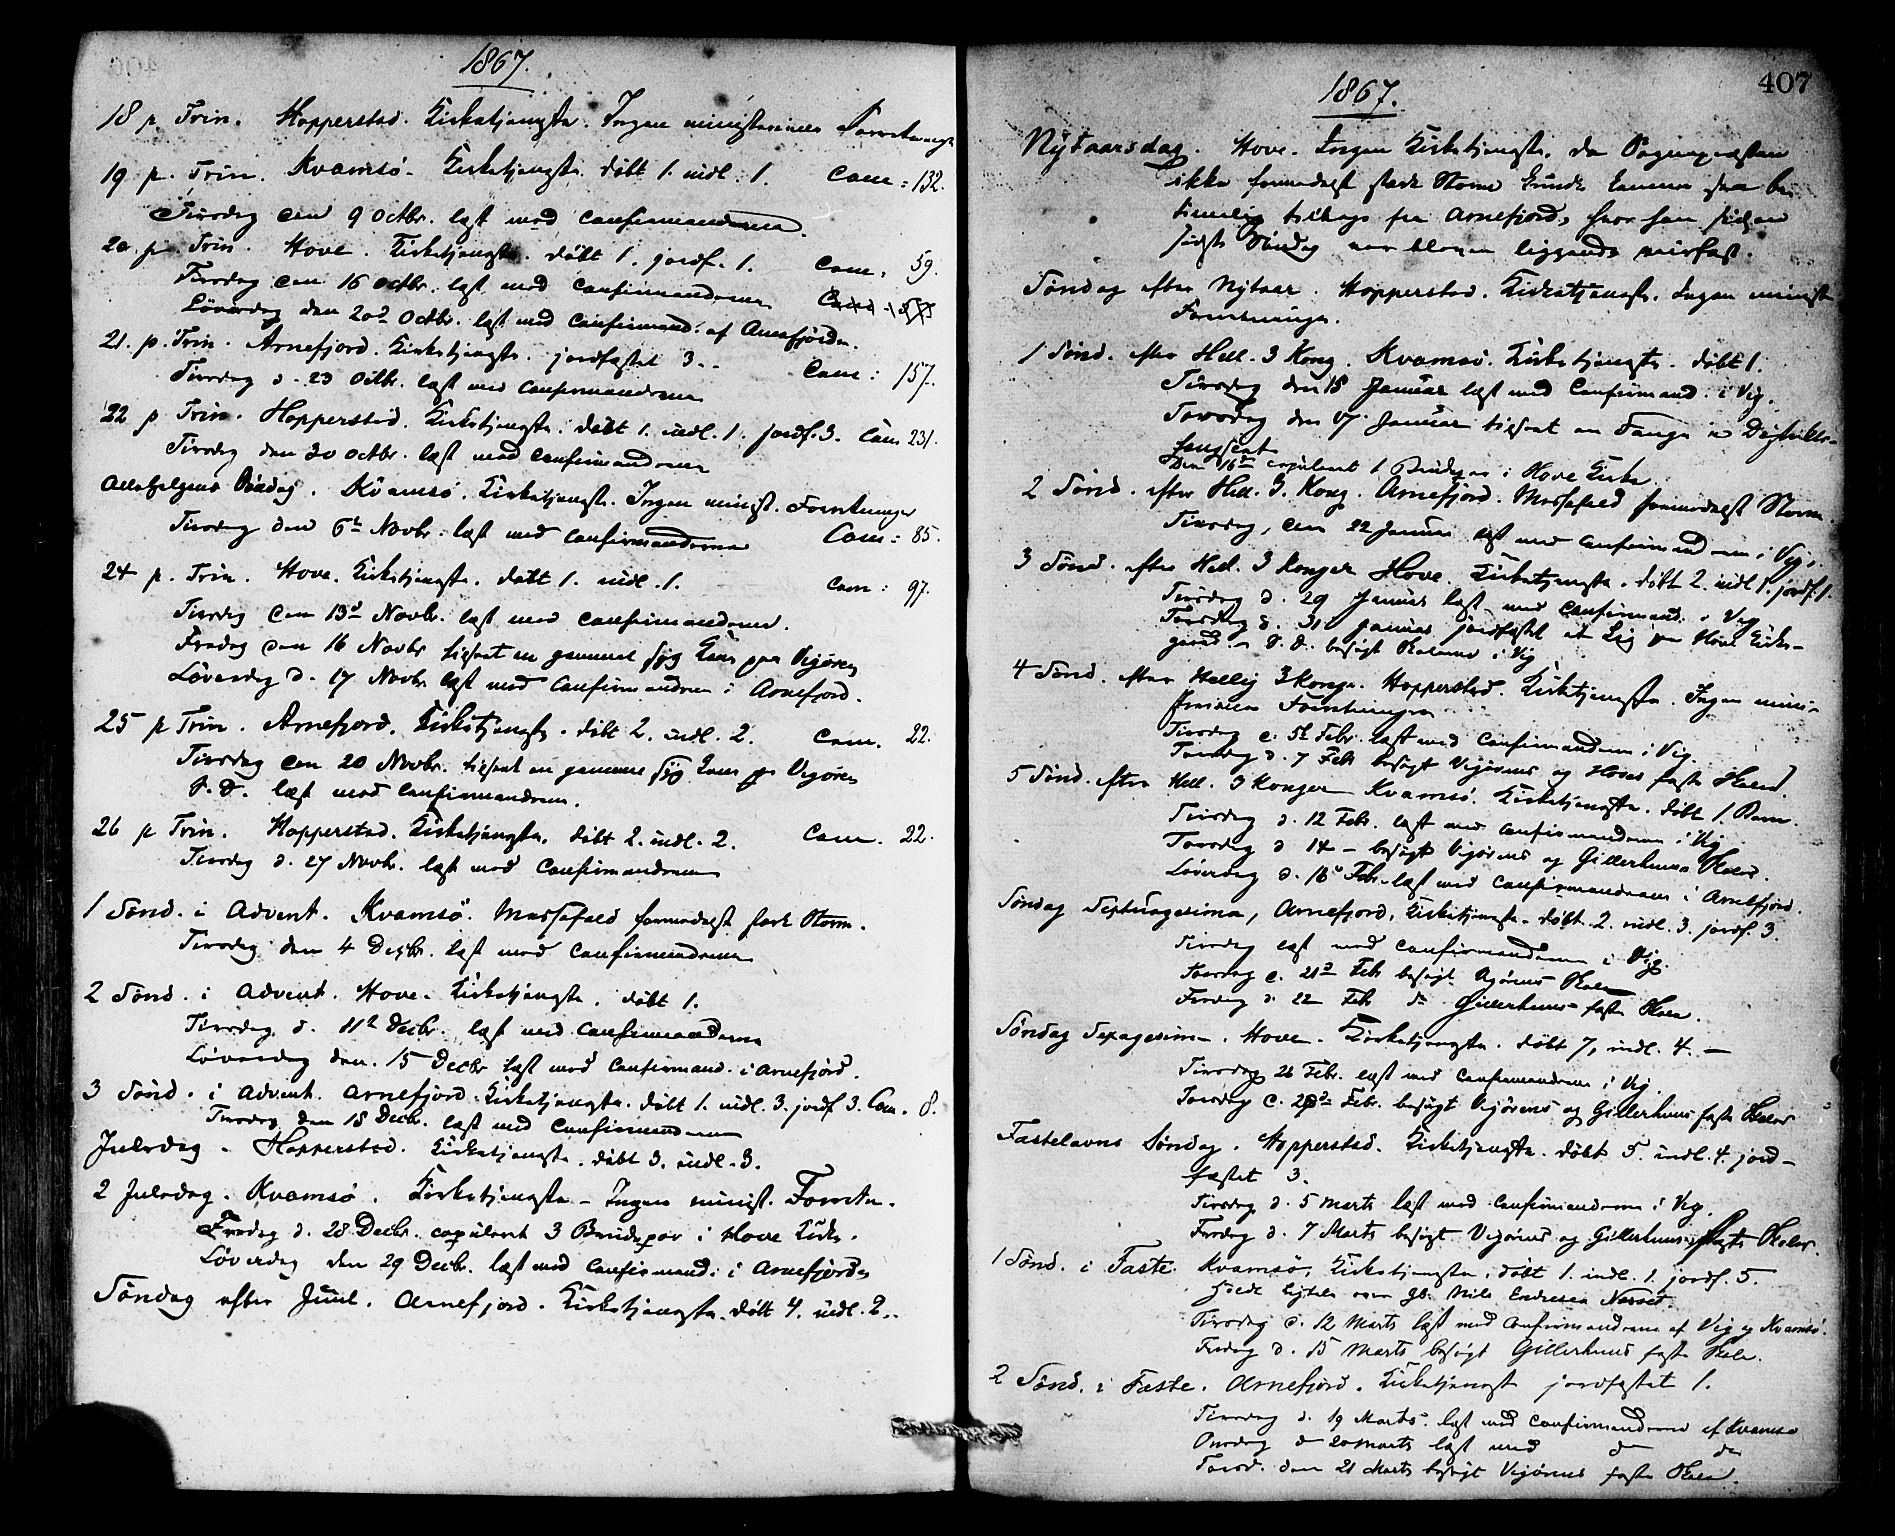 1867.
18 p Trin. Hopperstad. Kirketjeneste. Ingen ministerielle Forretninger
19 p. Trin. Kvamsö. Kirketjeneste. døbt 1. indl. 1. Com: 132.
Tirsdag den 9 Octbr. læst med Confirmanderne.
20 p. Trin. Hove. Kirketjeneste. døbt 1. jordf. 1. Com: 59.
Tirsdag den 16 Octbr. læst med Confirmanderne
Löverdag den 20de Octbr. læst med Confirmand. af Arnefjorden.
21. p. Trin. Arnefjord. Kirketjeneste. jordfæstet 3. Com: 157.
Tirsdag d. 23 Octbr. læst med Confirmanderne
22 p Trin. Hopperstad. Kirketjeneste. døbt 1. indl. 1. jordf. 3. Com 231.
Tirsdag den 30 Octbr. læst med Confirmanderne
Allehelgens Søndag. Kvamsö. Kirketjeneste. Ingen minist. Forretninger
Tirsdag den 6te Novbr. læst med Confirmanderne Com: 85.
24 p. Trin. Hove. Kirketjeneste. døbt 1. indl. 1. Com: 97.
Tirsdag den 13de Novbr. læst med Confirmanderne.
Fredag den 16 Novbr betjent en gammel syg Kone paa Vigören
Löverdag d. 17 Novbr læst med Confirmanderne i Arnefjord.
25 p Trin. Arnefjord. Kirketjeneste. døbt 2. indl. 2. Com. 22.
Tirsdag den 20 Novbr. betjent en gammel syg Kone paa Vigören
S. D. læst med Confirmanderne.
26 p Trin. Hopperstad. Kirketjeneste. døbt 2. indl. 2. Com. 22.
Tirsdag d. 27 Novbr. læst med Confirmanderne
1 Sønd. i Advent. Kvamsö. Messefald formedelst stærk Storm.
Tirsdag den 4 Decbr. læst med Confirmanderne
2 Sønd. i Advent. Hove. Kirketjeneste. døbt 1.
Tirsdag d. 11te Decbr. læst med Confirmanderne
Löverdag den 15 Decbr læst med Confirmand. i Arnefjord.
3 Sønd. i Advent. Arnefjord. Kirketjeneste. døbt 1. indl. 3. jordf 3. Com. 8.
Tirsdag den 18 Decbr. læst med Confirmanderne
Juledag. Hopperstad. Kirketjeneste. døbt 3. indl. 3.
2 Juledag. Kvamsö. Kirketjeneste – Ingen minist. Forretn.
Fredag d. 28 Decbr. copuleret 3 Brudepar i Hove Kirke.
Löverdag den 29 Decbr. læst med Confirmand. i Arnefjorden
Söndag efter Juul. Arnefjord. Kirketjeneste. døbt 4. indl. 2.
407
1867.
Nytaarsdag. Hove. Ingen Kirketjeneste, da Sognepræsten
ikke formedelst stærk Storm kunde komme
tilbage fra Arnefjord, hvor han siden
sidste Söndag var bleven liggende veirfast.
Söndag efter Nytaar. Hopperstad. Kirketjeneste. Ingen minist.
Forretninger.
1 Sønd. efter Hell. 3 Kong. Kvamsö. Kirketjeneste. døbt 1.
Tirsdag den 15 Januar læst med Confirmand. i Vig.
Torsdag den 17 Januar betjent en Fange i Distrikts-
fengslet
Den 16de copuleret 1 Brudepar i Hove Kirke
2 Sønd. efter Hell. 3. Kong. Arnefjord. Messefald formedelst Storm.
Tirsdag, den 22 Januar læst med Confirmanderne i Vig.
3 Sønd. efter Hell. 3 Konger Hove. Kirketjeneste. døbt 2. indl 1. jordf. 1.
Tirsdag d. 29 Januar læst med Confirmand. i Vig
Torsdag d. 31 Januar jordfæstet et Lig paa Hove Kirke-
gaard. – S. D. besøgt Skolerne i Vig
4 Sønd. efter Hellig 3 Konger. Hopperstad. Kirketjeneste. Ingen mini-
sterielle Forretninger
Tirsdag d. 5te Febr. læst med Confirmanderne i Vig.
Torsdag d. 7 Febr besøgt Vigörens og Hoves faste Skoler.
5 Sønd. efter Hell. 3 Konger Kvamsö. Kirketjeneste. døbt 1 Barn.
Tirsdag d. 12 Febr. læst med Confirmanderne i Vig
Torsdag d 14 – besøgt Vigörens og Gillerhuus Skoler.
Löverdag d. 16 Febr. læst med Confirmanderne i Arnefjord.
Söndag Septuagesima, Arnefjord, Kirketjeneste. døbt 2. indl. 3. jordf. 3.
Tirsdag læst med Confirmanderne i Vig.
Torsdag d. 21de Febr besøgt Vigörens Skole
Fredag d. 22 Febr do Gillerhuus faste Skole.
Söndag Sexagesima. Hove. Kirketjeneste. døbt 7, indl. 4. –
Tirsdag 26 Febr. læst med Confirmanderne i Vig.
Torsdag d. 28de Febr. besøgt Vigörens og Gillerhuus faste Skoler
Fastelavns Söndag. Hopperstad. Kirketjeneste. døbt 5. indl. 4. jord-
fæstet 3.
Tirsdag d. 5 Marts læst med Confirmanderne i Vig.
Torsdag d. 7 Marts besøgt Vigörens og Gillerhuus faste Skoler.
1 Sønd. i Faste. Kvamsö, Kirketjeneste, døbt 1. indl. 1. jordf. 5.
holdt Ligtale over Gb. Nils Endresen Nesset.
Tirsdag d. 12 Marts læst med Confirmanderne af Vig og Kvamsö.
Fredag d. 15 Marts besøgt Gillerhuus faste Skole.
2 Sønd. i Faste. Arnefjord. Kirketjeneste jordfæstet 1.
Tirsdag d. 19 Marts. læst med Confirmanderne af Kvamsö
Onsdag d 20 Marts læst med do do
Torsd. den 21 Marts besøgt Vigörens faste Skole.